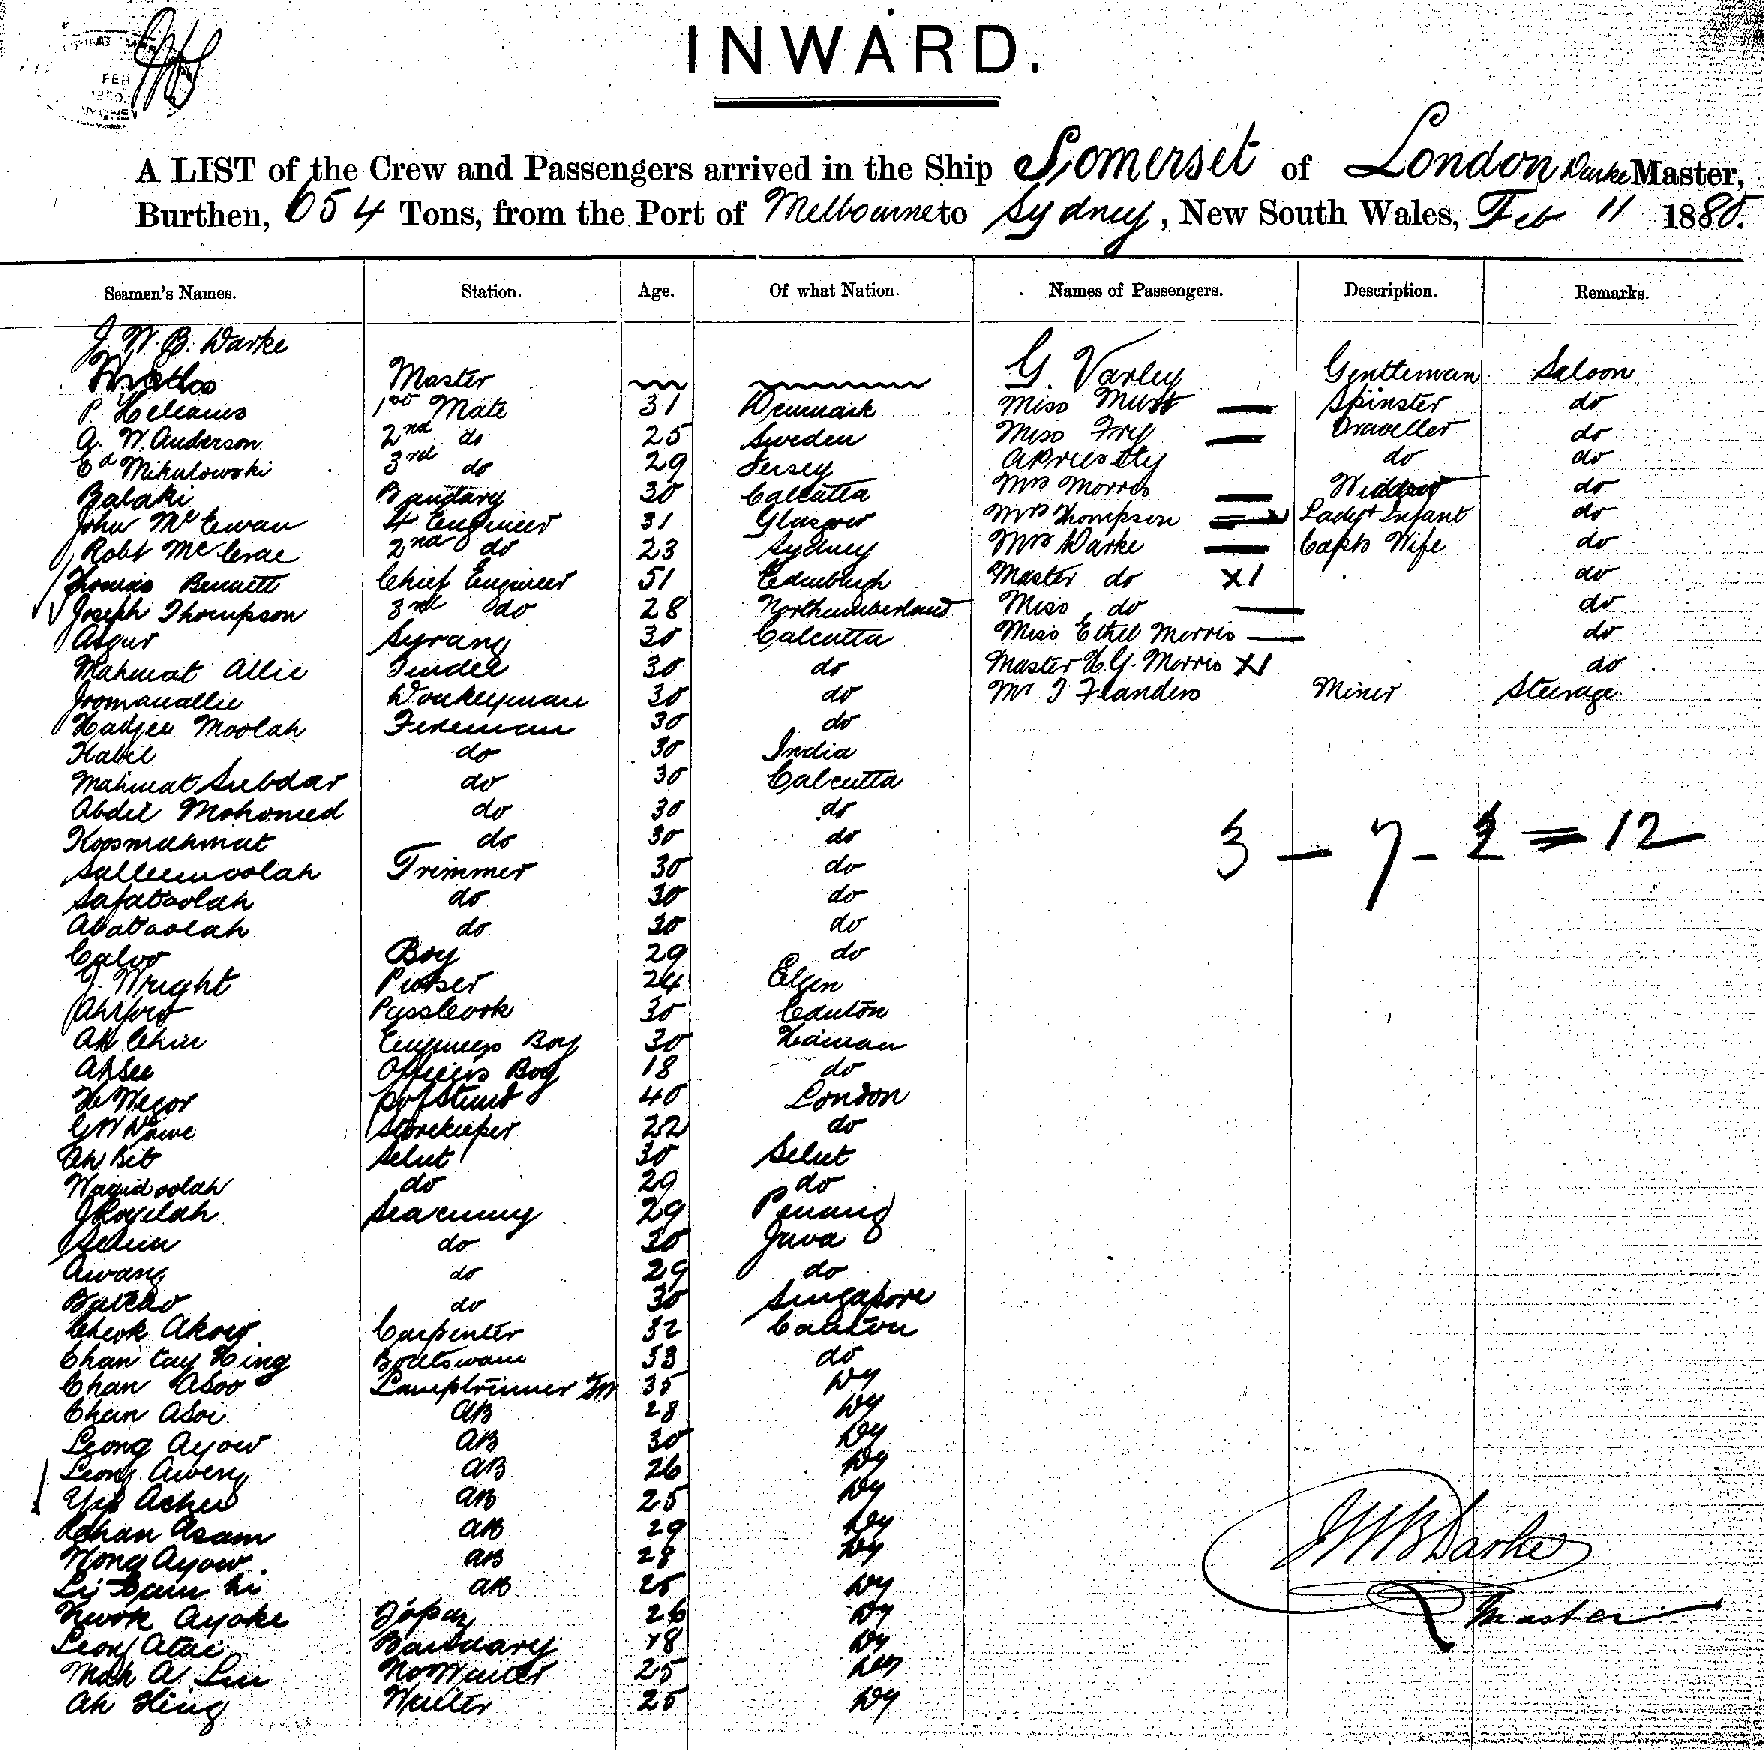 FEB
INWARD.
A LIST of the Crew and Passengers arrived in the Ship Somerset of London Darke Master,
Burthen, 654 Tons, from the Port of Melbourne to Sydney, New South Wales, Feb 11 1880.
Seamen's Names. Station. Age. Of what Nation. Names of Passengers. Description. Remarks.
J. W. B. Darke
Master G. Varley Gentleman Saloon
P. 1st Mate 31 Denmark Miss Spinster do
A. W. Anderson 2nd do 25 Sweden Miss Frey Traveller do
Ed Mikulowski 3rd do 29 Jersey A Priestly do do
Balaki Bandary 30 Calcutta Mrs Morris do
John McEwan 4 Engineer 31 Glasgow Mrs Thompson Lady + Infant do
Robt McCrae 2nd do 23 Sydney Mrs Darke Capts Wife do
Thomas Bennett Chief Engineer 51 Edinburgh Master do X1 do
Joseph Thompson 3rd do 28 Northumberland Miss do do
Asgur Syrang 30 Calcutta Miss Ethel Morris do
Mahmat Allie Tindel 30 do Master H. G. Morris X1 do
Joomanallie Donkeyman 30 do Mr J Flanders Miner Steerage
Hadjee Moolah Fireman 30 do
Habil do 30 India
Mahmat Subdar do 30 Calcutta
Abdil Mohomed do 30 do
Koosmahmat do 30 do
3 – 7 – 2 = 12
Salleemoolah Trimmer 30 do
Safatoolah do 30 do
Abatoolah do 30 do
Caloo Boy 29 do
J. Wright Purser 24 Elgin
30 Canton
Ah Chin Engineers Boy 30 Hainan
Ah See Officers Boy 18 do
40 London
Storekeeper 22 do
Ah Kit 30
Wagidoolah do 29 do
29 Penang
do 30 Java
Awang do 29 do
do 30 Singapore
Cheok Akow Carpenter 32 Canton
Chan Tay Hing Boatswain 53 do
Chan Asoo Lamptrimmer 35 Dy
Chan Asoi AB 28 Dy
Leong Ayow AB 30 Dy
Leong Aweng AB 26 Dy
Yip Achew AB 25 Dy
Chan Asam AB 29 Dy
Wong Ayow AB 28 Dy
AB 25 Dy
Kwok Ayoke Topaz 26 Dy
Leong Atai Bandary 48 Dy
25 Dy
Ah Hing Waiter 25 Dy
JWB Darke
Master